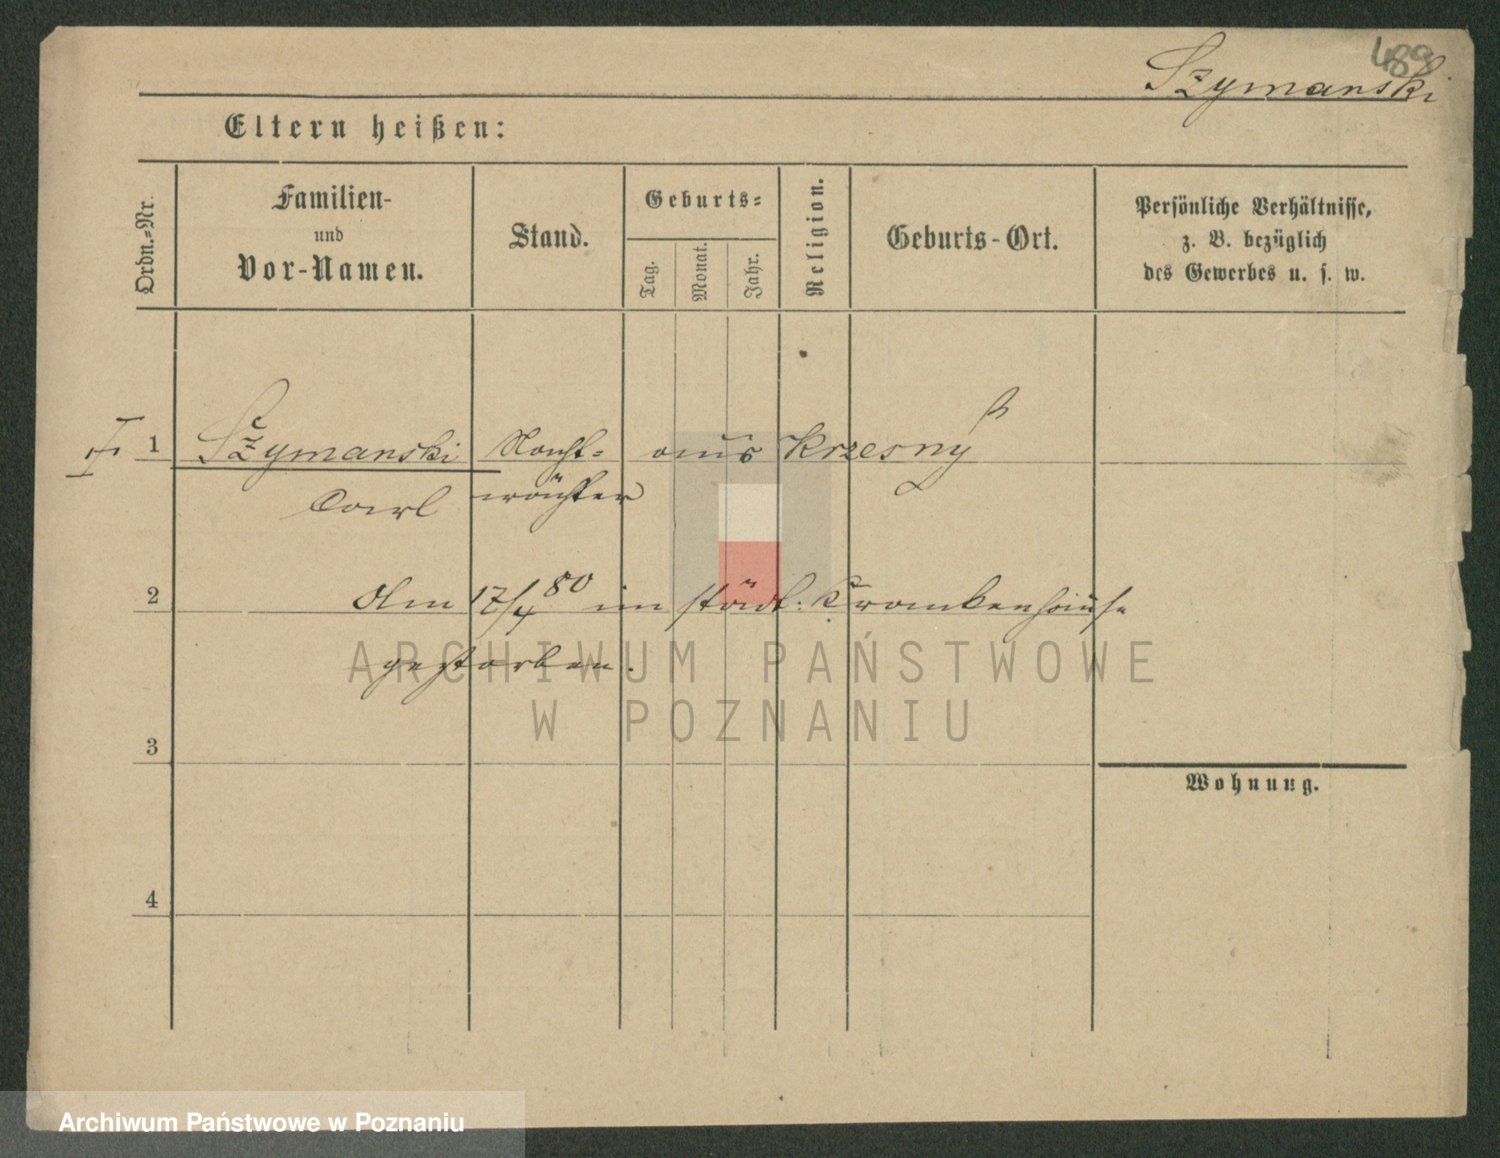 489
Szymanski
Eltern heißen:
Ordn.-Nr.
Familien-
und
Vor-Namen.
Stand.
Geburts-
Tag.
Monat.
Jahr.
Religion.
Geburts-Ort.
Persönliche Verhältnisse,
z. B. bezüglich
des Gewerbes u. s. w.
1 Szymanski Nacht- aus Krzesny
Carl wächter
2 Am 17/4 80 im städt. Krankenhause
gestorben.
ARCHIWUM PAŃSTWOWE
W POZNANIU
3
Wohnung.
4
Archiwum Państwowe w Poznaniu